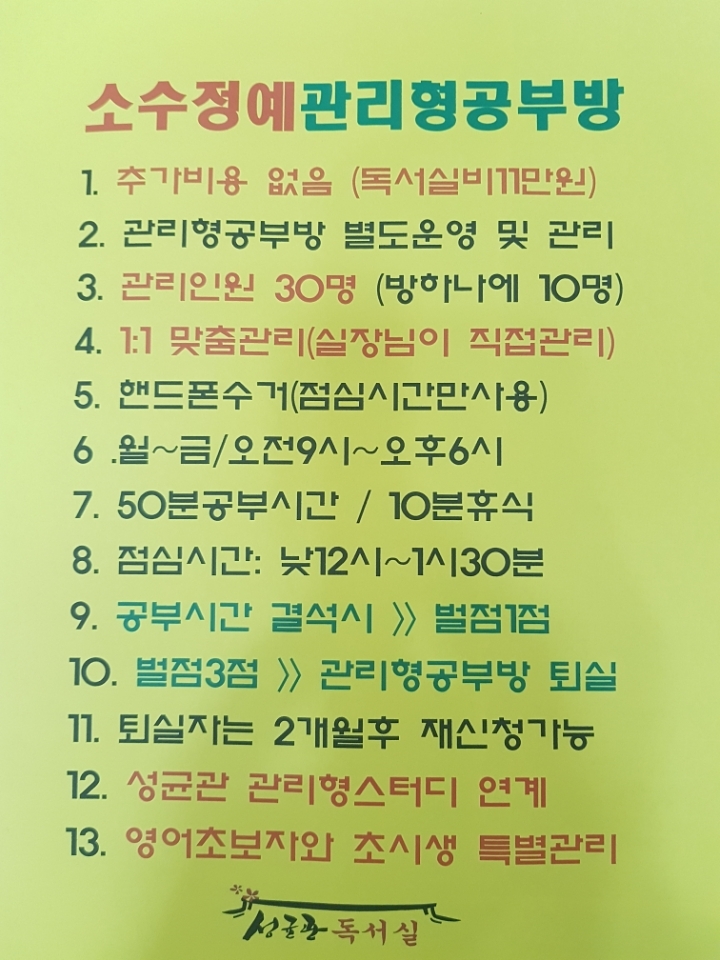 소수정예관리형공부방
1. 추가비용 없음 (독서실비11만원)
2. 관리형공부방 별도운영 및 관리
3. 관리인원 30명 (방하나에 10명)
4. 1:1 맞춤관리(실장님이 직접관리)
5. 핸드폰수거(점심시간만사용)
6 .월~금/오전9시~오후6시
7. 50분공부시간 / 10분휴식
8. 점심시간: 낮12시~1시30분
9. 공부시간 결석시 》 벌점1점
10. 벌점3점 》 관리형공부방 퇴실
11. 퇴실자는 2개월후 재신청가능
12. 성균관 관리형스터디 연계
13. 영어초보자와 초시생 특별관리
성균관 독서실